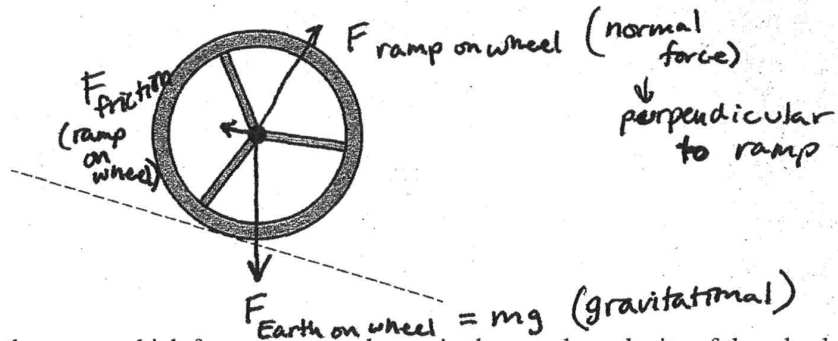 F ramp on wheel (normal force)
↓
perpendicular to ramp
F friction
(ramp on wheel)
F Earth on wheel = mg (gravitational)